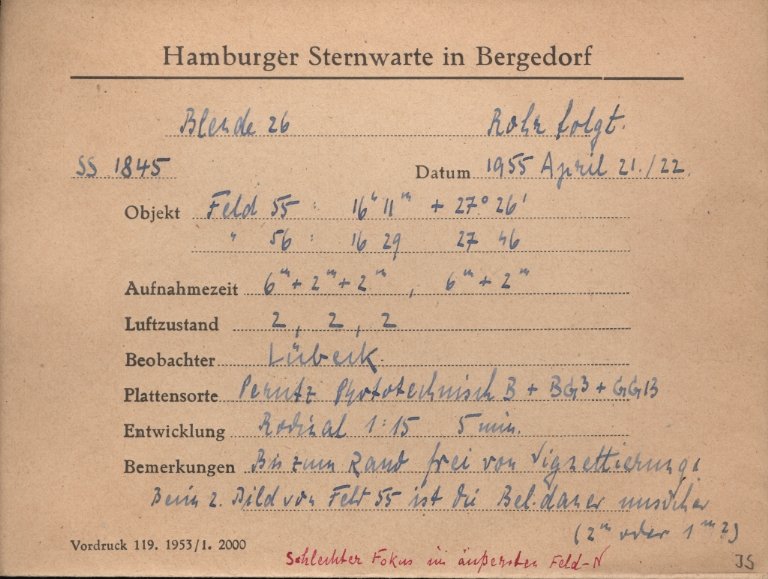 Hamburger Sternwarte in Bergedorf
Blende 26 Rohr folgt.
SS 1845 Datum 1955 April 21./22.
Objekt Feld 55 : 16ʰ 11ᵐ + 27° 26'
" 56 : 16 29 27 46
Aufnahmezeit 6ᵐ + 2ᵐ + 2ᵐ , 6ᵐ + 2ᵐ
Luftzustand 2, 2, 2
Beobachter Lübeck.
Plattensorte Perutz Phototechnisch B + BG3 + GG13
Entwicklung Rodinal 1:15 5 min.
Bemerkungen Bis zum Rand frei von Vignettierung.
Beim 2. Bild von Feld 55 ist die Bel.dauer unsicher
(2ᵐ oder 1ᵐ 2)
Vordruck 119. 1953/1. 2000
Schlechter Fokus im äußersten Feld-N
JS